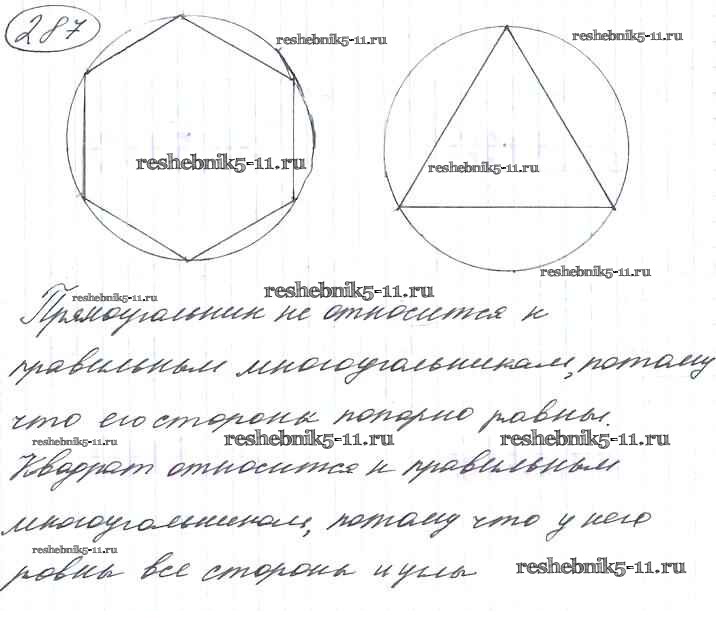 287
reshebnik5-11.ru
reshebnik5-11.ru
reshebnik5-11.ru
reshebnik5-11.ru
reshebnik5-11.ru
reshebnik5-11.ru
reshebnik5-11.ru
Прямоугольник не относится к
правильным многоугольникам, потому
что его стороны попарно равны.
reshebnik5-11.ru
reshebnik5-11.ru
reshebnik5-11.ru
Квадрат относится к правильным
многоугольникам, потому что у него
reshebnik5-11.ru
равны все стороны и углы
reshebnik5-11.ru